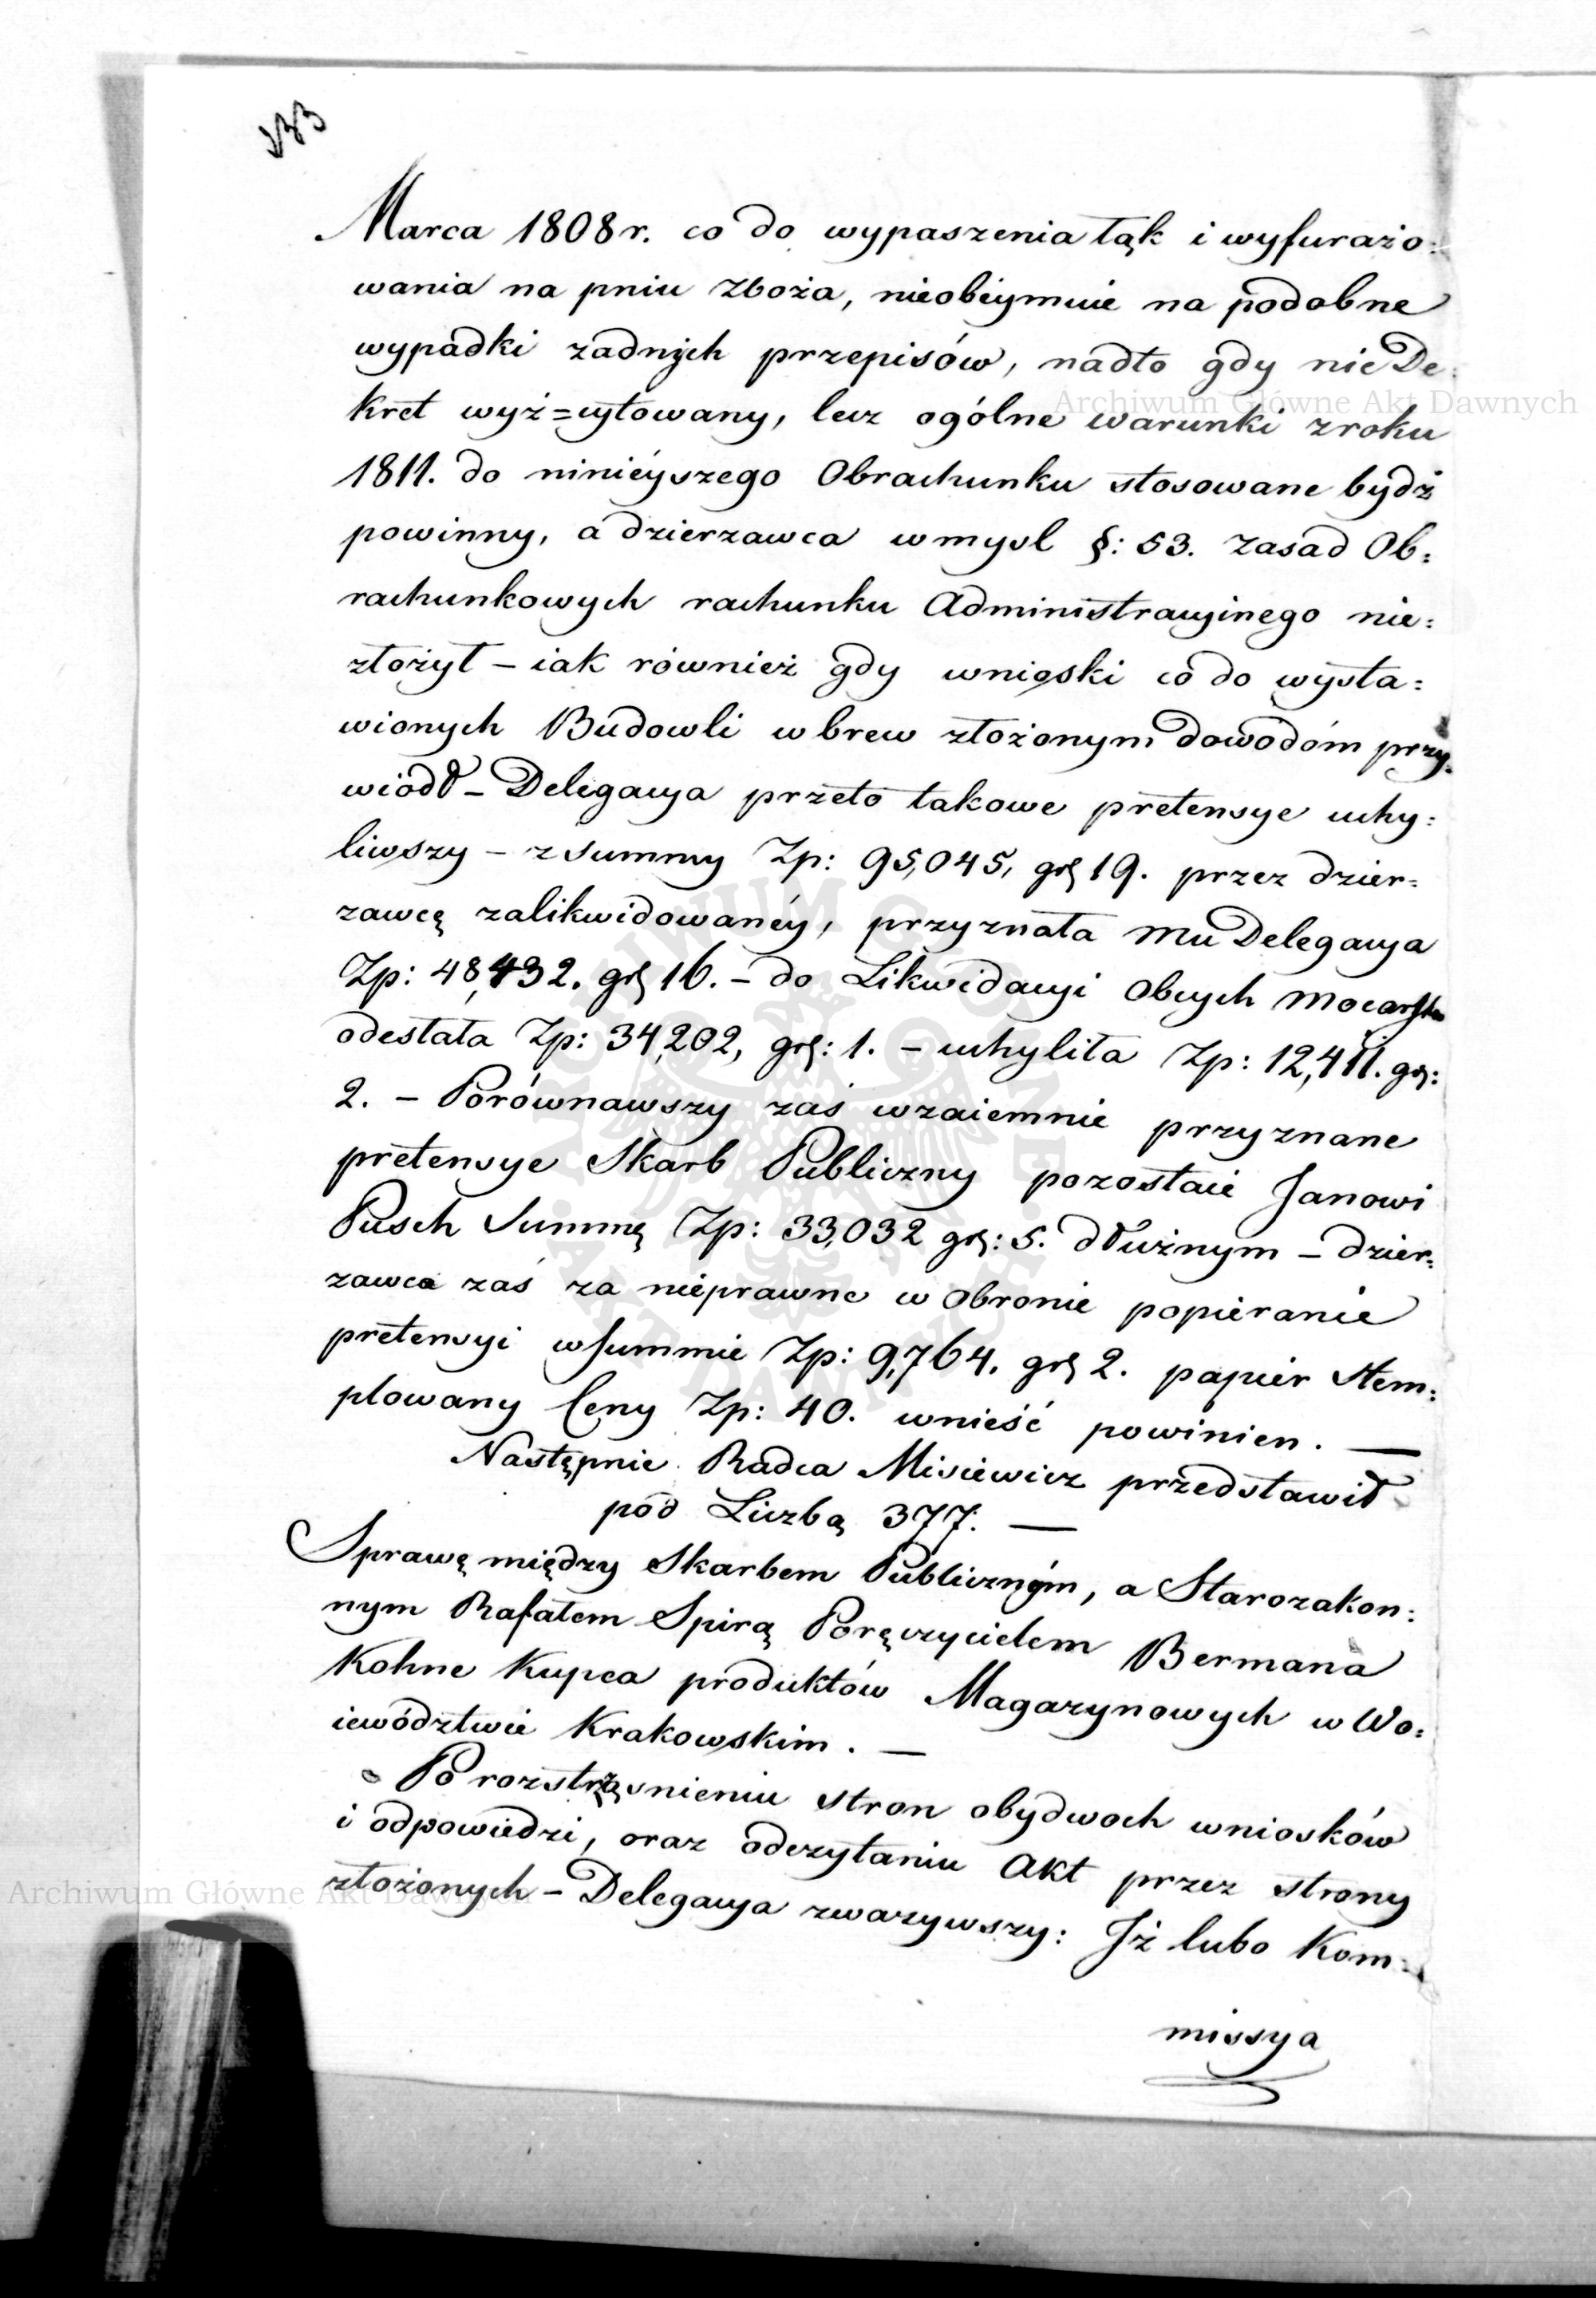 Marca 1808 r. co do wypaszenia łąk i wyfurażo:
wania na pniu zboża, nieobeymuie na podobne
wypadki żadnych przepisów, nadto gdy nie De:
kret wyż=cytowany, lecz ogólne warunki z roku
1811. do ninieyszego Obrachunku stosowane bydź
powinny, a dzierzawca w mysl §: 53. Zasad Ob:
rachunkowych rachunku Administracyinego nie:
złożył – iak również gdy wnioski co do wysta:
wionych Budowli wbrew złożonym dowodóm przy:
wiódł – Delegacya przeto takowe pretensye uchy:
liwszy – z summy Zp: 95,045, gr 19. przez dzier:
zawcę zalikwidowanéy, przyznała mu Delegacya
Zp: 48,432. gr 16. – do Likwidacyi Obcych Mocarstw
odesłała Zp: 34,202, gr: 1. – uchyliła Zp: 12,411. gr:
2. – Porównawszy zaś wzaiemnie przyznane
pretensye Skarb Publiczny pozostaie Janowi
Pusch Summę Zp: 33,032 gr: 5. dłużnym – dzier:
zawca zaś za nieprawne w obronie popieranie
pretensyi w summie Zp: 9,764. gr 2. papier stem:
plowany Ceny Zp: 40. wnieść powinien. —
Następnie Radca Misiewicz przedstawił
pod Liczbą 377. —
Sprawę między Skarbem Publicznym, a Starozakon:
nym Rafałem Spirą Poręczycielem Bermana
Kohne Kupca produktów Magazynowych w Wo:
iewództwie Krakowskim. —
Po rozstrząśnieniu stron obydwoch wniosków
i odpowiedzi, oraz odczytaniu Akt przez strony
złożonych – Delegacya zważywszy: Iż lubo Kom:
missya
Archiwum Główne Akt Dawnych
Archiwum Główne Akt Dawnych
ARCHIWUM GŁÓWNE AKT DAWNYCH